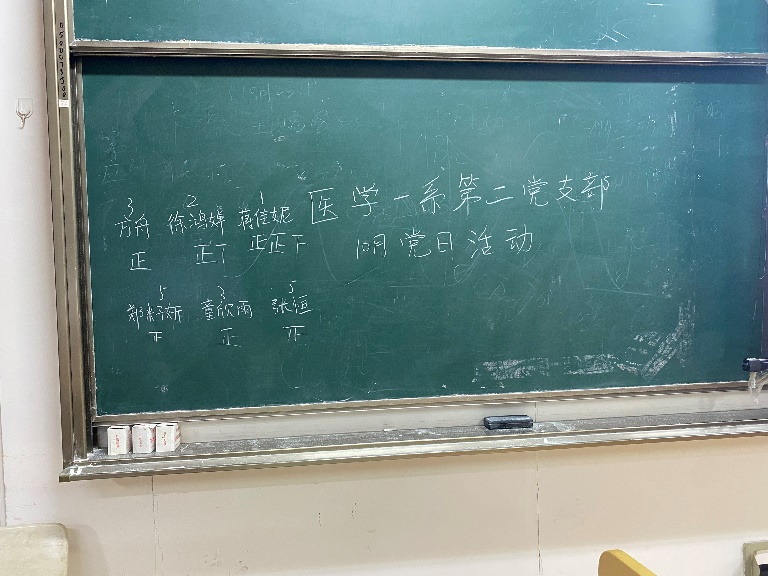 医学一系第二党支部
10月党日活动
3 2 1
方舟 徐鸿婷 蒋佳妮
正 正丅 正正下
5 3 5
郑 童欣雨 张恒
正 正 正